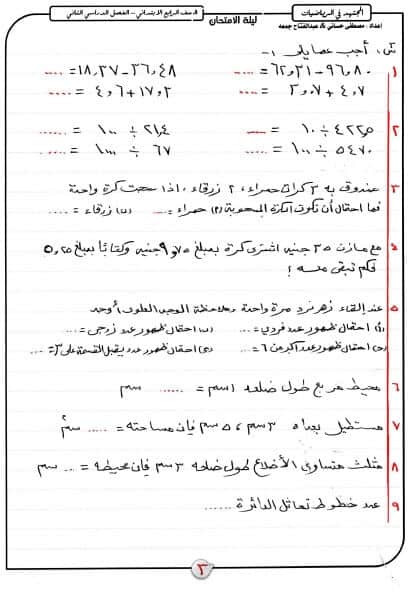 المجتهد في الرياضيات
ليلة الامتحان
الصف الرابع الابتدائي - الفصل الدراسي الثاني
س١ أجب عما يلى :-
١ ٩٦,٨٠ - ٦٢,٣١ = ...... ٣٦,٤٨ - ١٨,٢٧ = ......
٤,٧ + ٢,٠٧ = ...... ٢,١٧ + ٤,٦ = ......
٢ ٤٢٢٥ ÷ ١٠ = ...... ٢١٤ ÷ ١٠٠ = ......
٥٤٧٠ ÷ ١٠٠ = ...... ٦٧ ÷ ١٠٠٠ = ......
٣ صندوق به ٣ كرات حمراء، ٢ زرقاء، اذا سحبت كرة واحدة
فما احتمال أن تكون الكرة المسحوبة (أ) حمراء = ...... (ب) زرقاء = ......
٤ مع مازن ٣٥ جنيه اشترى كرة بمبلغ ٩,٧٥ جنيه وكتابا بمبلغ ٥,٢٥
فكم تبقى معه ؟
٥ عند إلقاء زهر نرد مرة واحدة وملاحظة الوجه العلوى أوجد
(أ) احتمال ظهور عدد فردي = ...... (ب) احتمال ظهور عدد زوجى = ......
(ج) احتمال ظهور عدد أكبر من ٦ = ...... (د) احتمال ظهور عدد يقبل القسمة على ٣ = ......
٦ محيط مربع طول ضلعه ١ سم = ...... سم
٧ مستطيل بعداه ٣ سم ، ٥ سم فإن مساحته = ...... سم٢
٨ مثلث متساوى الأضلاع طول ضلعه ٣ سم فإن محيطه = ...... سم
٩ عدد خطوط تماثل الدائرة ......
٢